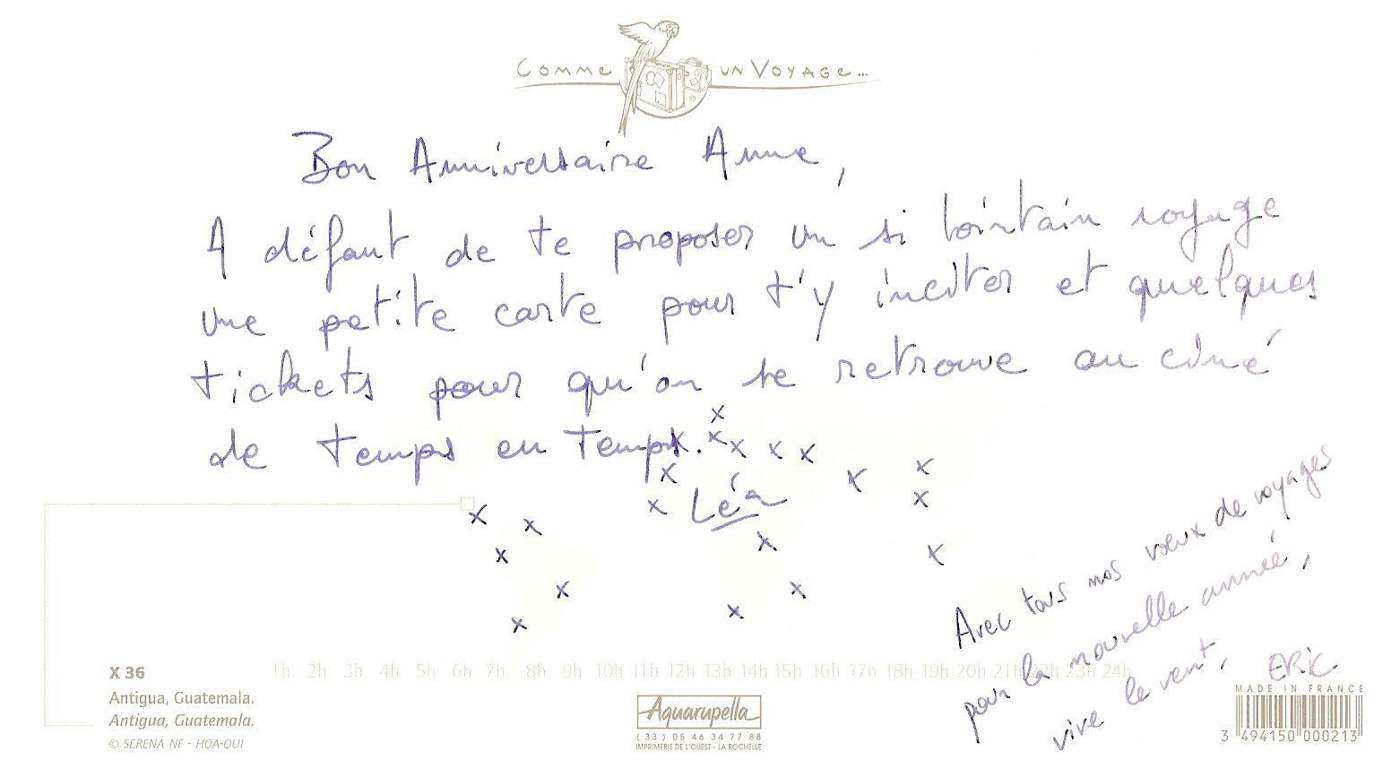 COMME UN VOYAGE...
Bon Anniversaire Anne,
A défaut de te proposer un si lointain voyage
une petite carte pour t'y inciter et quelques
tickets pour qu'on se retrouve au ciné
de temps en temps.
Léa
Avec tous nos vœux de voyages
pour la nouvelle année,
vive le vent,
ERIC
1h 2h 3h 4h 5h 6h 7h 8h 9h 10h 11h 12h 13h 14h 15h 16h 17h 18h 19h 20h 21h 22h 23h 24h
X 36
Antigua, Guatemala.
Antigua, Guatemala.
© SERENA NF - HOA-QUI
Aquarupella
(33) 05 46 34 77 88
IMPRIMERIE DE L'OUEST - LA ROCHELLE
MADE IN FRANCE
3 494150 000213